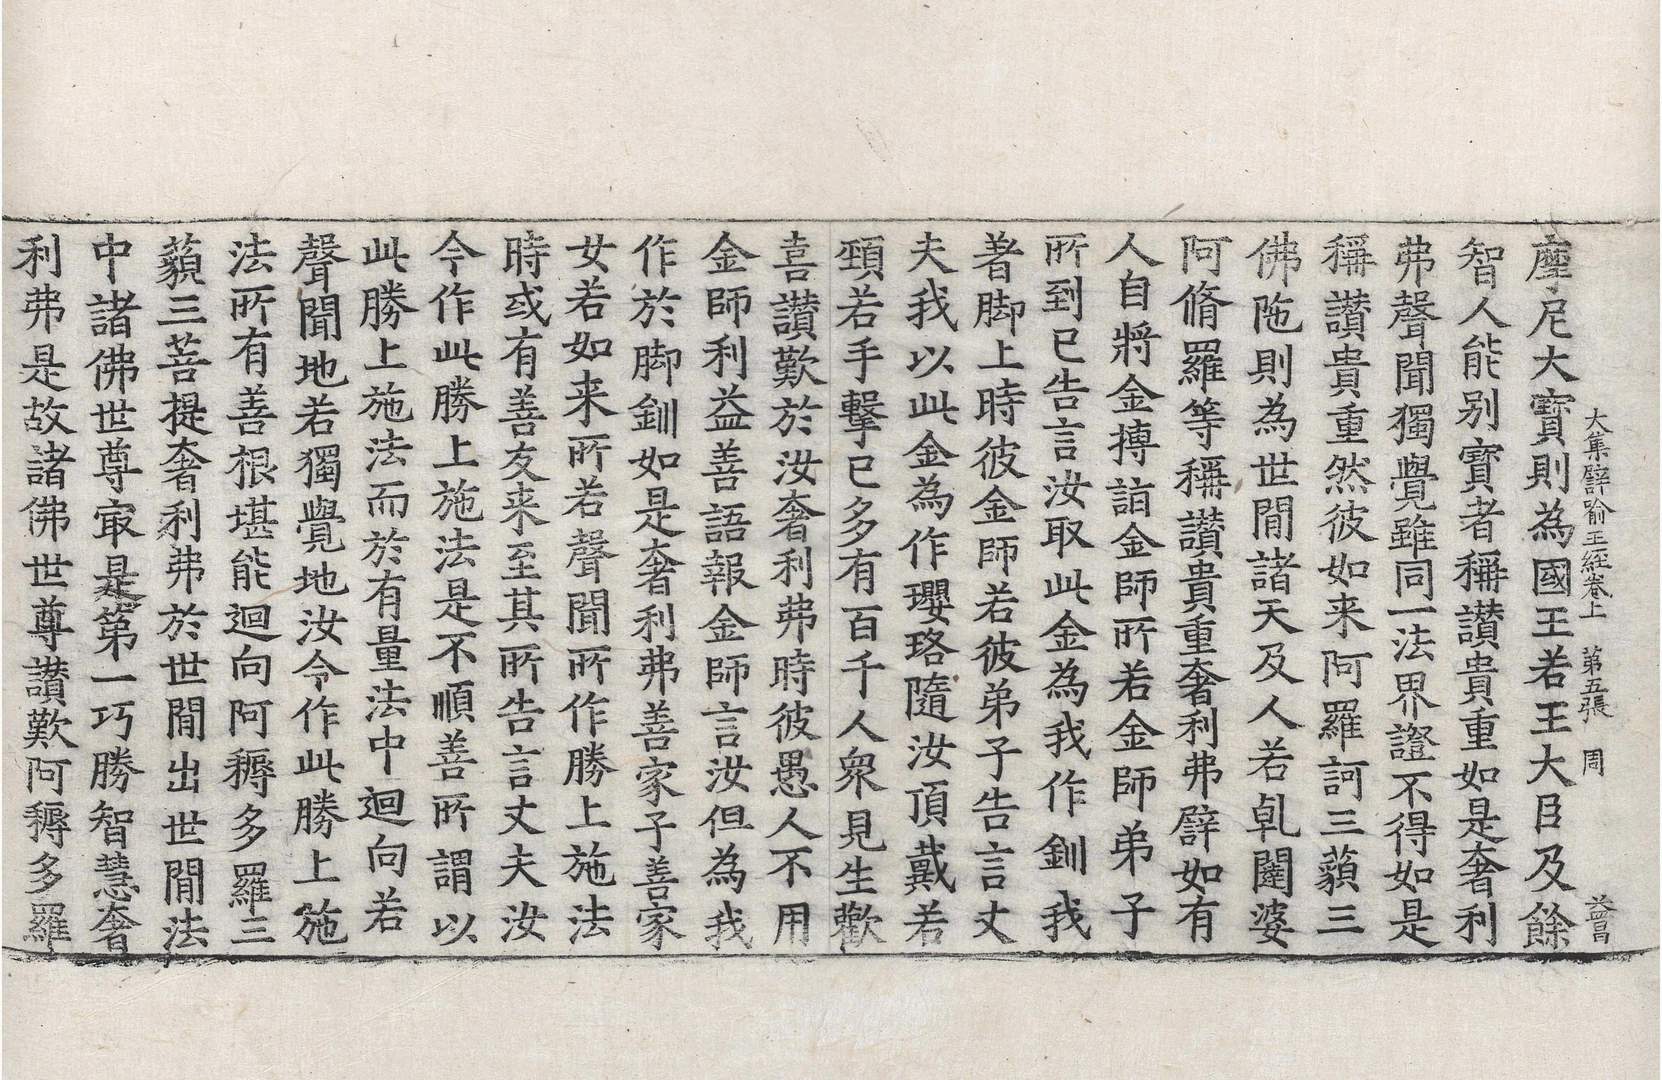 大集譬喻王經卷上　第五張　周　益昌
摩尼大寶則為國王若王大臣及餘
智人能別寶者稱讃貴重如是奢利
弗聲聞獨覺雖同一法界證不得如是
稱讃貴重然彼如来阿羅訶三藐三
佛陁則為世閒諸天及人若乹闥婆
阿脩羅等稱讃貴重奢利弗譬如有
人自將金摶詣金師所若金師弟子
所到已告言汝取此金為我作釧我
著脚上時彼金師若彼弟子告言丈
夫我以此金為作瓔珞隨汝頂戴若
頸若手擊已多有百千人衆見生歡
喜讃歎於汝奢利弗時彼愚人不用
金師利益善語報金師言汝但為我
作於脚釧如是奢利弗善家子善家
女若如来所若聲聞所作勝上施法
時或有善友来至其所告言丈夫汝
今作此勝上施法是不順善所謂以
此勝上施法而於有量法中迴向若
聲聞地若獨覺地汝令作此勝上施
法所有善根堪能迴向阿耨多羅三
藐三菩提奢利弗於世閒出世閒法
中諸佛世尊寂是第一巧勝智慧奢
利弗是故諸佛世尊讃歎阿耨多羅